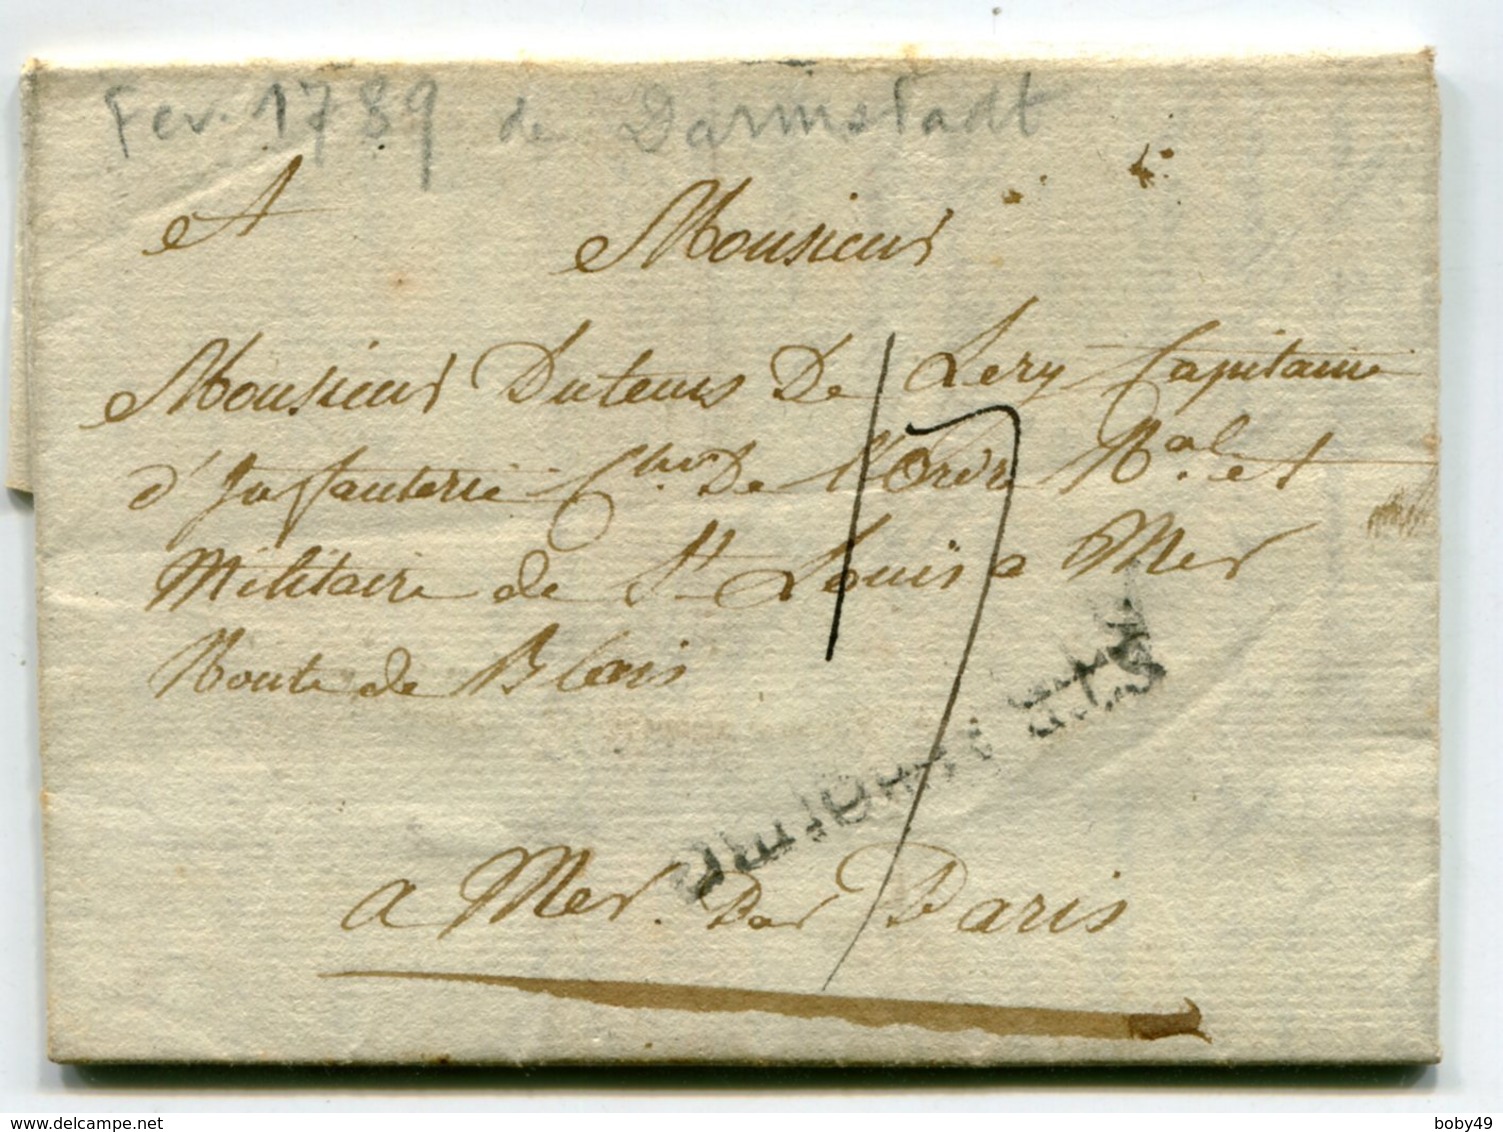 Fev. 1789 de Darmstadt
A Monsieur
Monsieur Dutems De Lery Capitaine
d'Infanterie Chr. De l'Ordre Ral. et
Militaire de St Louis a Mer
Route de Blois
17
a Mer. Par Paris
www.delcampe.net
boby49